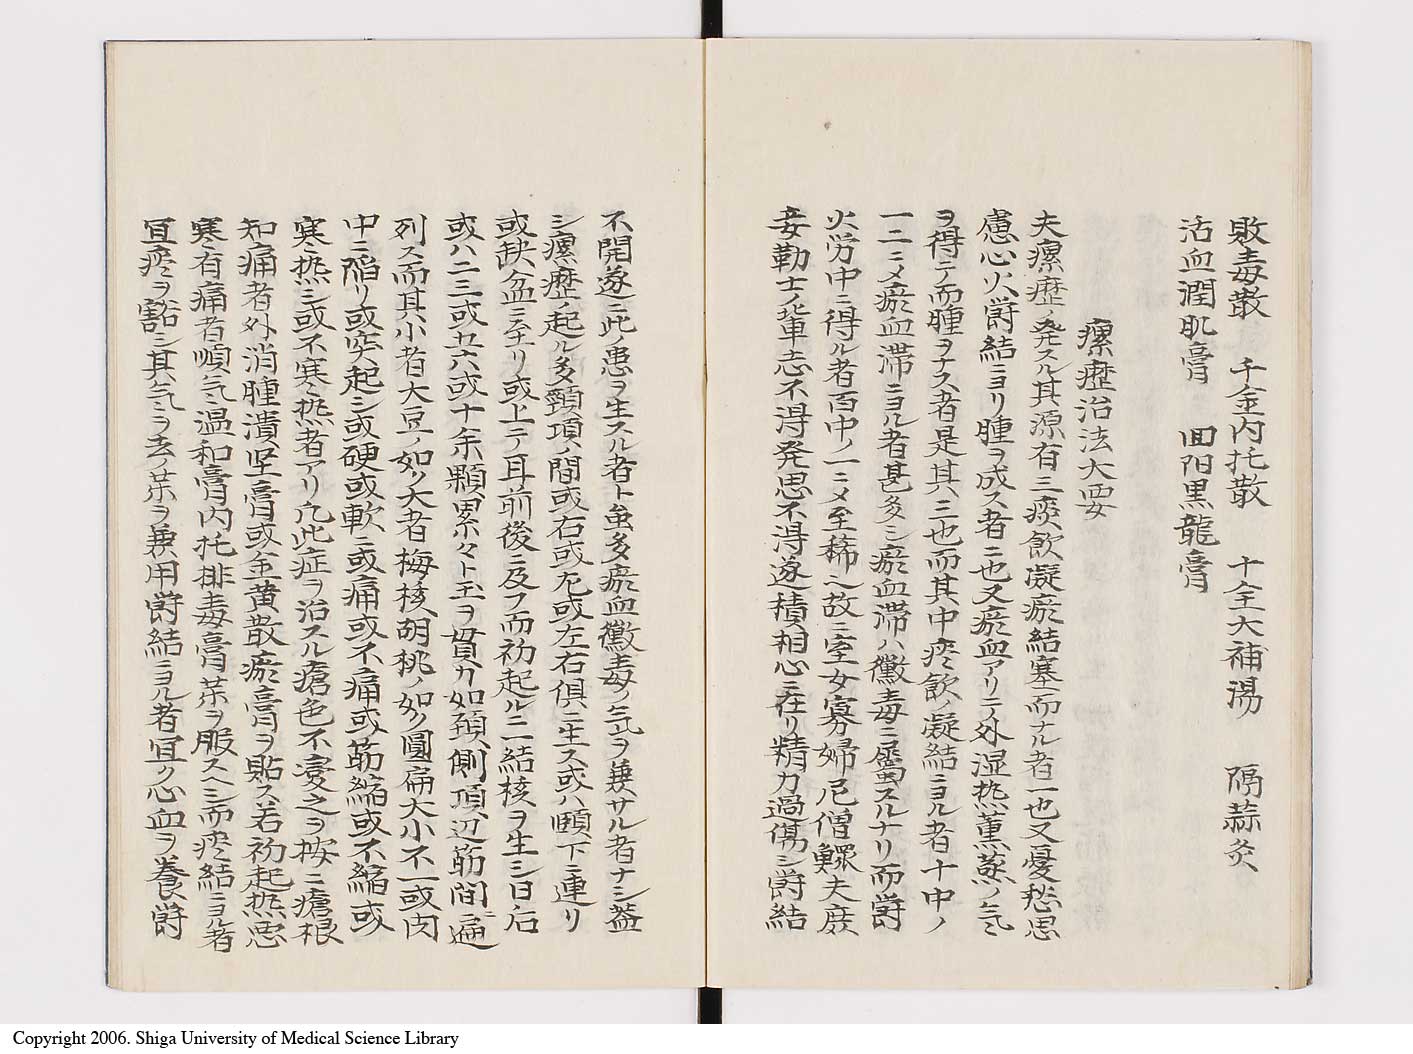 敗毒散 千金内托散 十全大補湯 隔蒜灸
活血潤肌膏 回阳黒龍膏
瘰癧治法大要
夫瘰癧ノ発スル其源有三痰飲凝瘀結塞而ナル者一也又憂愁思
慮心火欝結ニヨリ腫ヲ成ス者二也又瘀血アリテ外湿热薫蒸ノ气
ヲ得テ而腫ヲナス者是其三也而其中痰飲ノ凝結ニヨル者十中ノ
一二ニメ瘀血滞ニヨル者甚多シ瘀血滞ハ黴毒ニ属スルナリ而欝
火労中ニ得ル者百中ノ一ニメ至稀也故ニ室女寡婦尼僧鰥夫庶
妾勤士ノ輩志不得発思不得遂積相心ニ在リ精力過傷シ欝結
不開遂ニ此ノ患ヲ生スル者ト虽多瘀血黴毒ノ气ヲ兼サル者ナシ蓋
シ瘰癧起ル多頸項ノ間或右或左或左右俱ニ生ス或ハ頤下ニ連リ
或缺盆ニ至リ或上テ耳前後ニ及フ而初起ルニ一結核ヲ生シ日后
或ハ二三或五六或十余顆累々ト玉ヲ貫カ如頚側項辺筋間ニ遍
列ス而其小者大豆ノ如ク大者梅核胡桃ノ如ク圓扁大小不一或肉
中ニ陥リ或突起シ或硬或軟ニ或痛或不痛或筋縮或不縮或
寒热シ或不寒热者アリ凡此症ヲ治スル瘡色不変之ヲ按ニ瘡根
知痛者外消腫潰坚膏或金黄散瘀膏ヲ貼ス若初起热悪
寒有痛者順气温和膏内托排毒膏荣ヲ服スヘシ而痰結ニヨル者
宜痰ヲ豁シ其气ヲ去ノ荣ヲ兼用欝結ニヨル者宜ク心血ヲ養欝
Copyright 2006. Shiga University of Medical Science Library